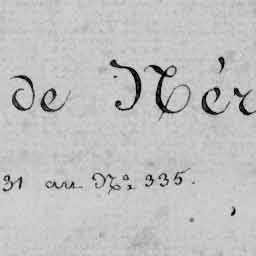 de Nér
31 au Nº 335.